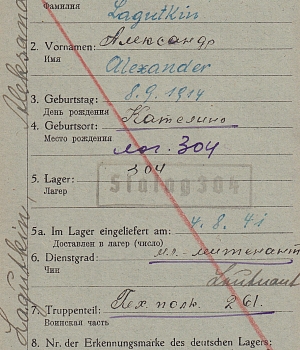 Фамилия
Lagutkin
2. Vornamen: Александр
Имя
Alexander
3. Geburtstag: 8.9.1914
День рождения
4. Geburtsort: Кателино
Место рождения
лаг. 304
5. Lager: 304
Лагер
Stalag 304
5a. Im Lager eingeliefert am: 4.8.41
Доставлен в лагер (число)
6. Dienstgrad: мл-лейтенант
Чин
Leutnant
7. Truppenteil: Пех полк. 261.
Воинская часть
8. Nr. der Erkennungsmarke des deutschen Lagers:
Lagutkin, Aleksand